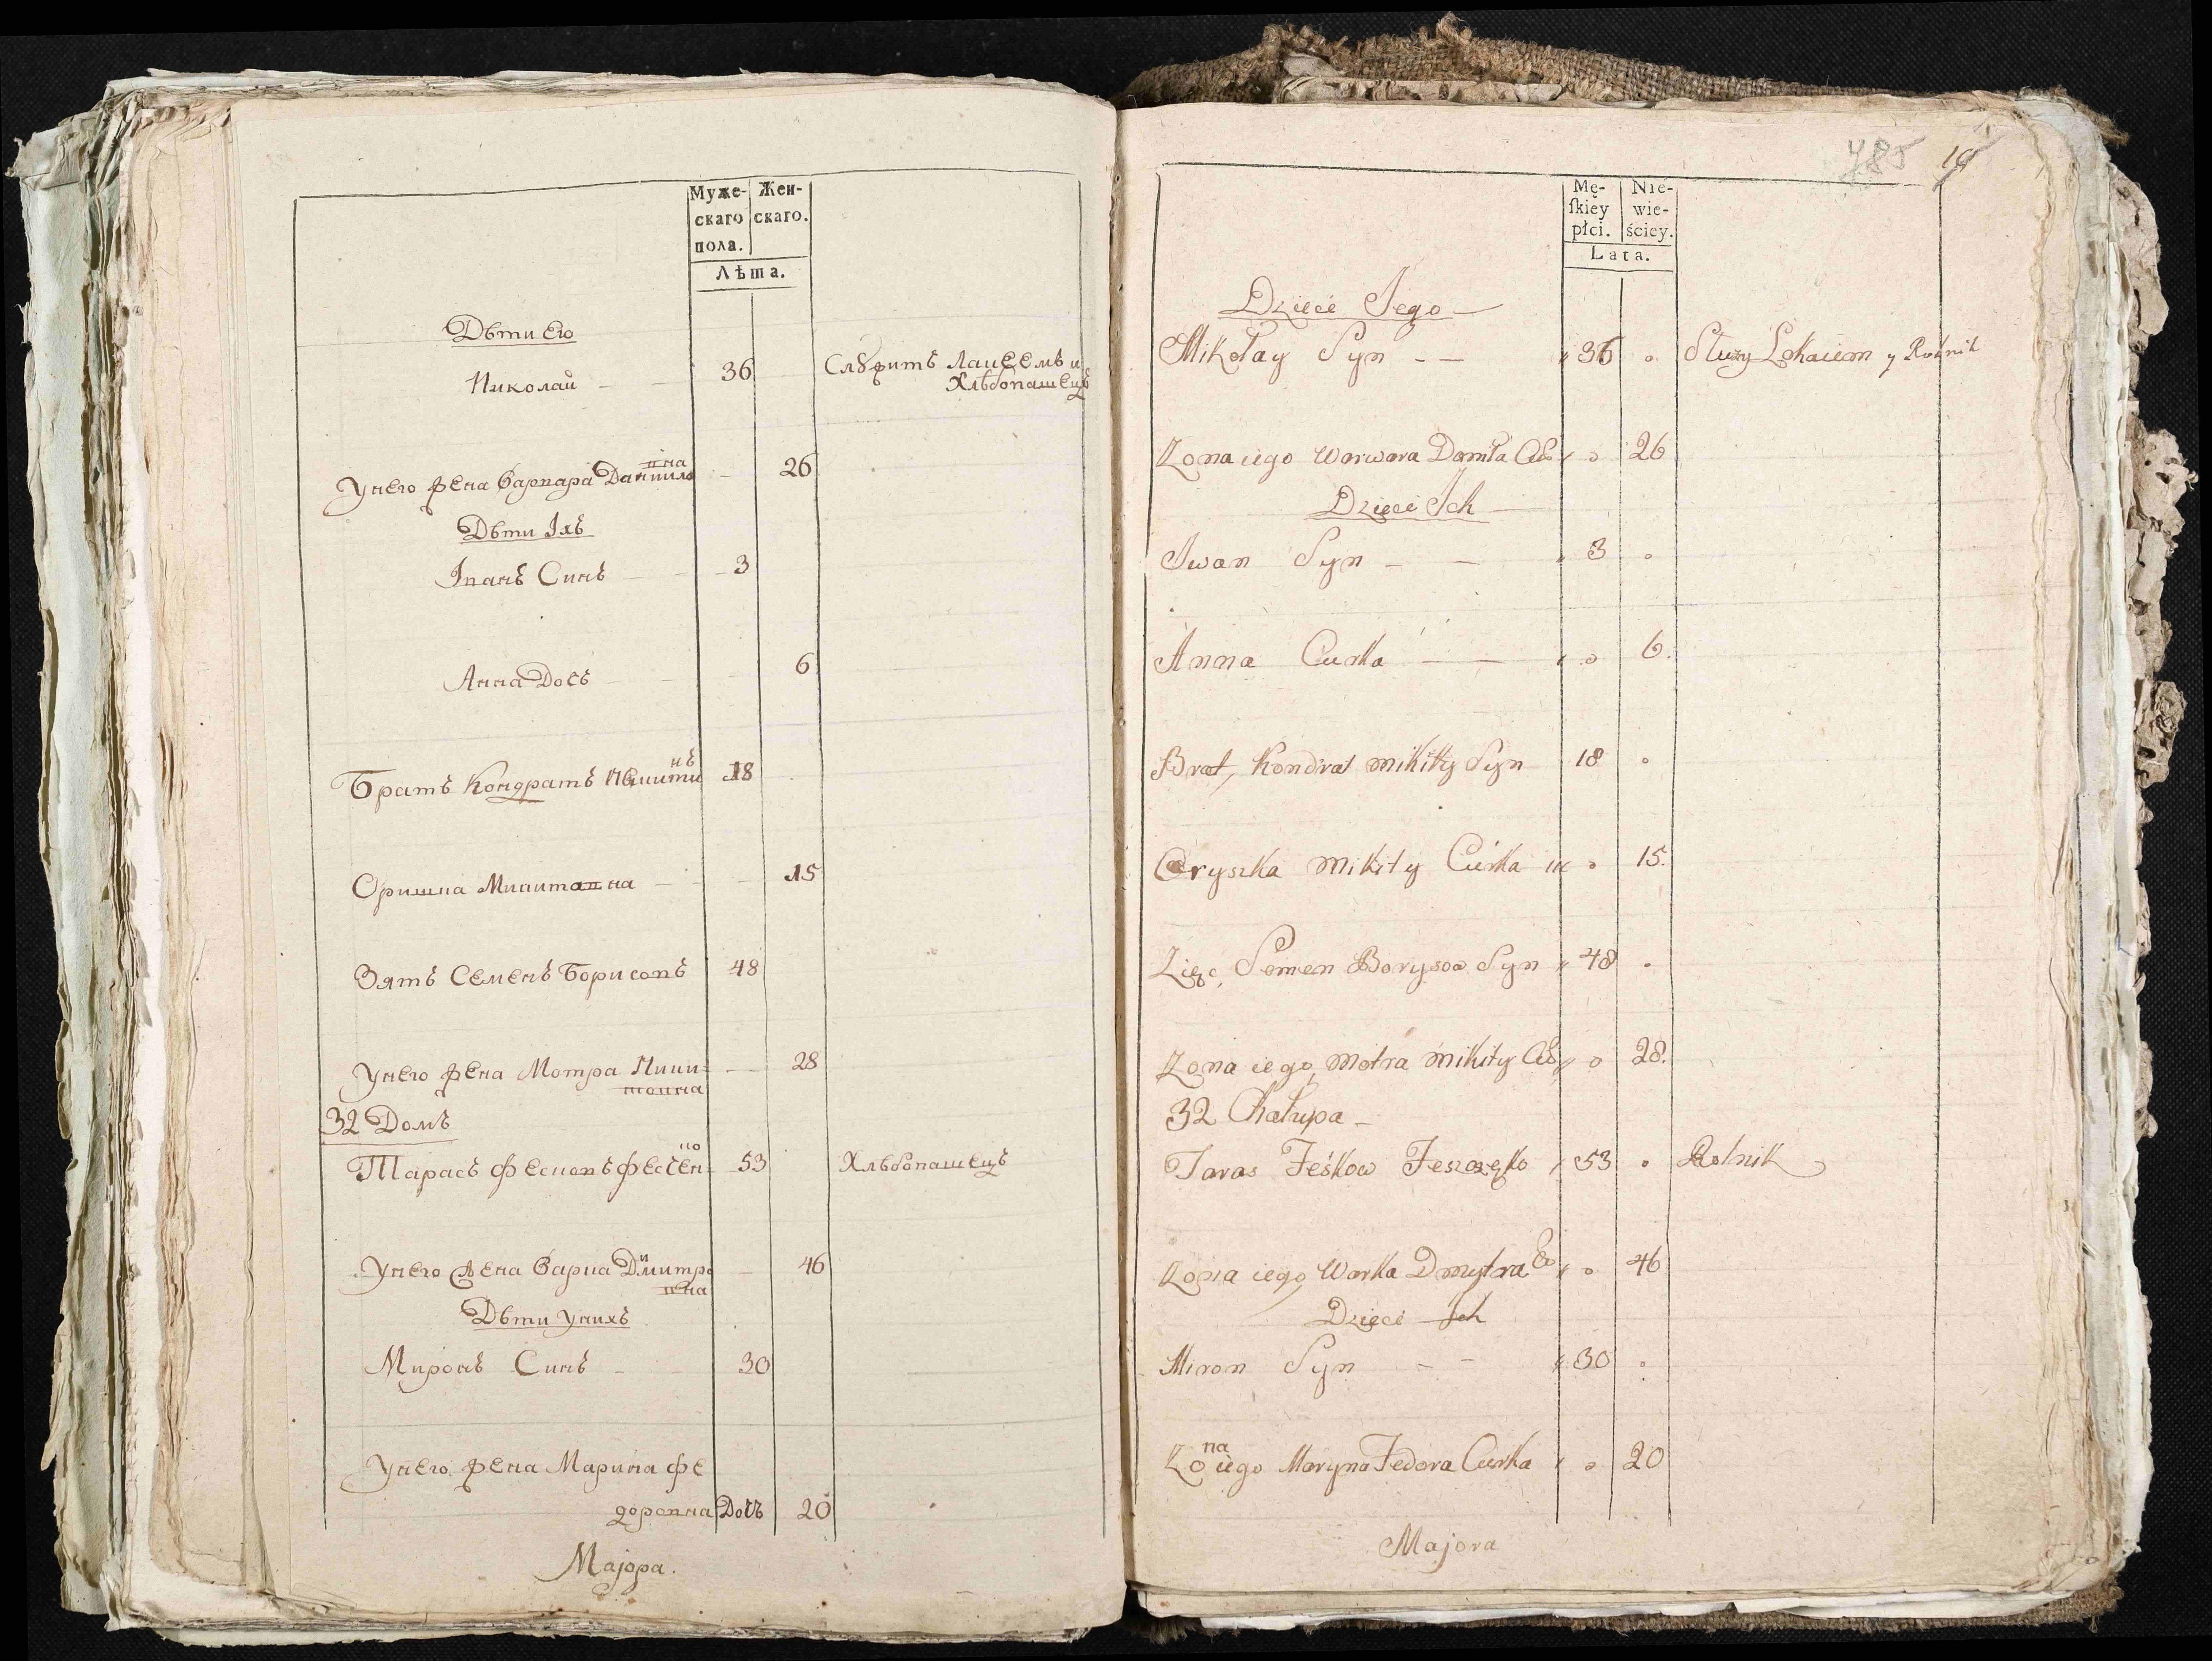 Муже-
скаго
пола.
Жен-
скаго.
Лѣта.
Дѣти Его
Николай 36 Слꙋжитъ Лакеемъ и
Хлѣбопашецъ
У него жена Варвара Данило
вна 26
Дѣти Ихъ
Іванъ Синъ 3
Анна Дочъ 6
Братъ Кондратъ Микити
нъ 18
Оришка Микитовна 15
Зятъ Семенъ Борисовъ 48
У него жена Мотра Мики=
товна 28
32 Домъ
Тарасъ Фесковъ Фесчен=
ко 53 Хлѣбопашецъ
У него жена Варка Дмитро
вна 46
Дѣти у нихъ
Миронъ Синъ 30
У него жена Марина Фе
доровна Дочъ 20
Маjора.
485 10
Mę-
skiey
płci.
Nie-
wie-
ściey.
Lata.
Dzieci Jego
Mikołay Syn 36 Służy Lokaiem y Rolnik
Zona iego Warwara Daniła 26
Dzieci Ich
Iwan Syn 3
Anna Curka 6.
Brat, Kondrat Mikity Syn 18
Oryszka Mikity Curka 15.
Zięć, Semen Borysow Syn 48
Zona iego, Motra Mikity 28.
32 Chałupa
Taras Feśkow Feszczęko 53 Rolnik
Zona iego, Warka Dmytra 46
Dzieci Ich
Miron Syn 30
Zona iego Maryna Fedora Curka 20
Majora